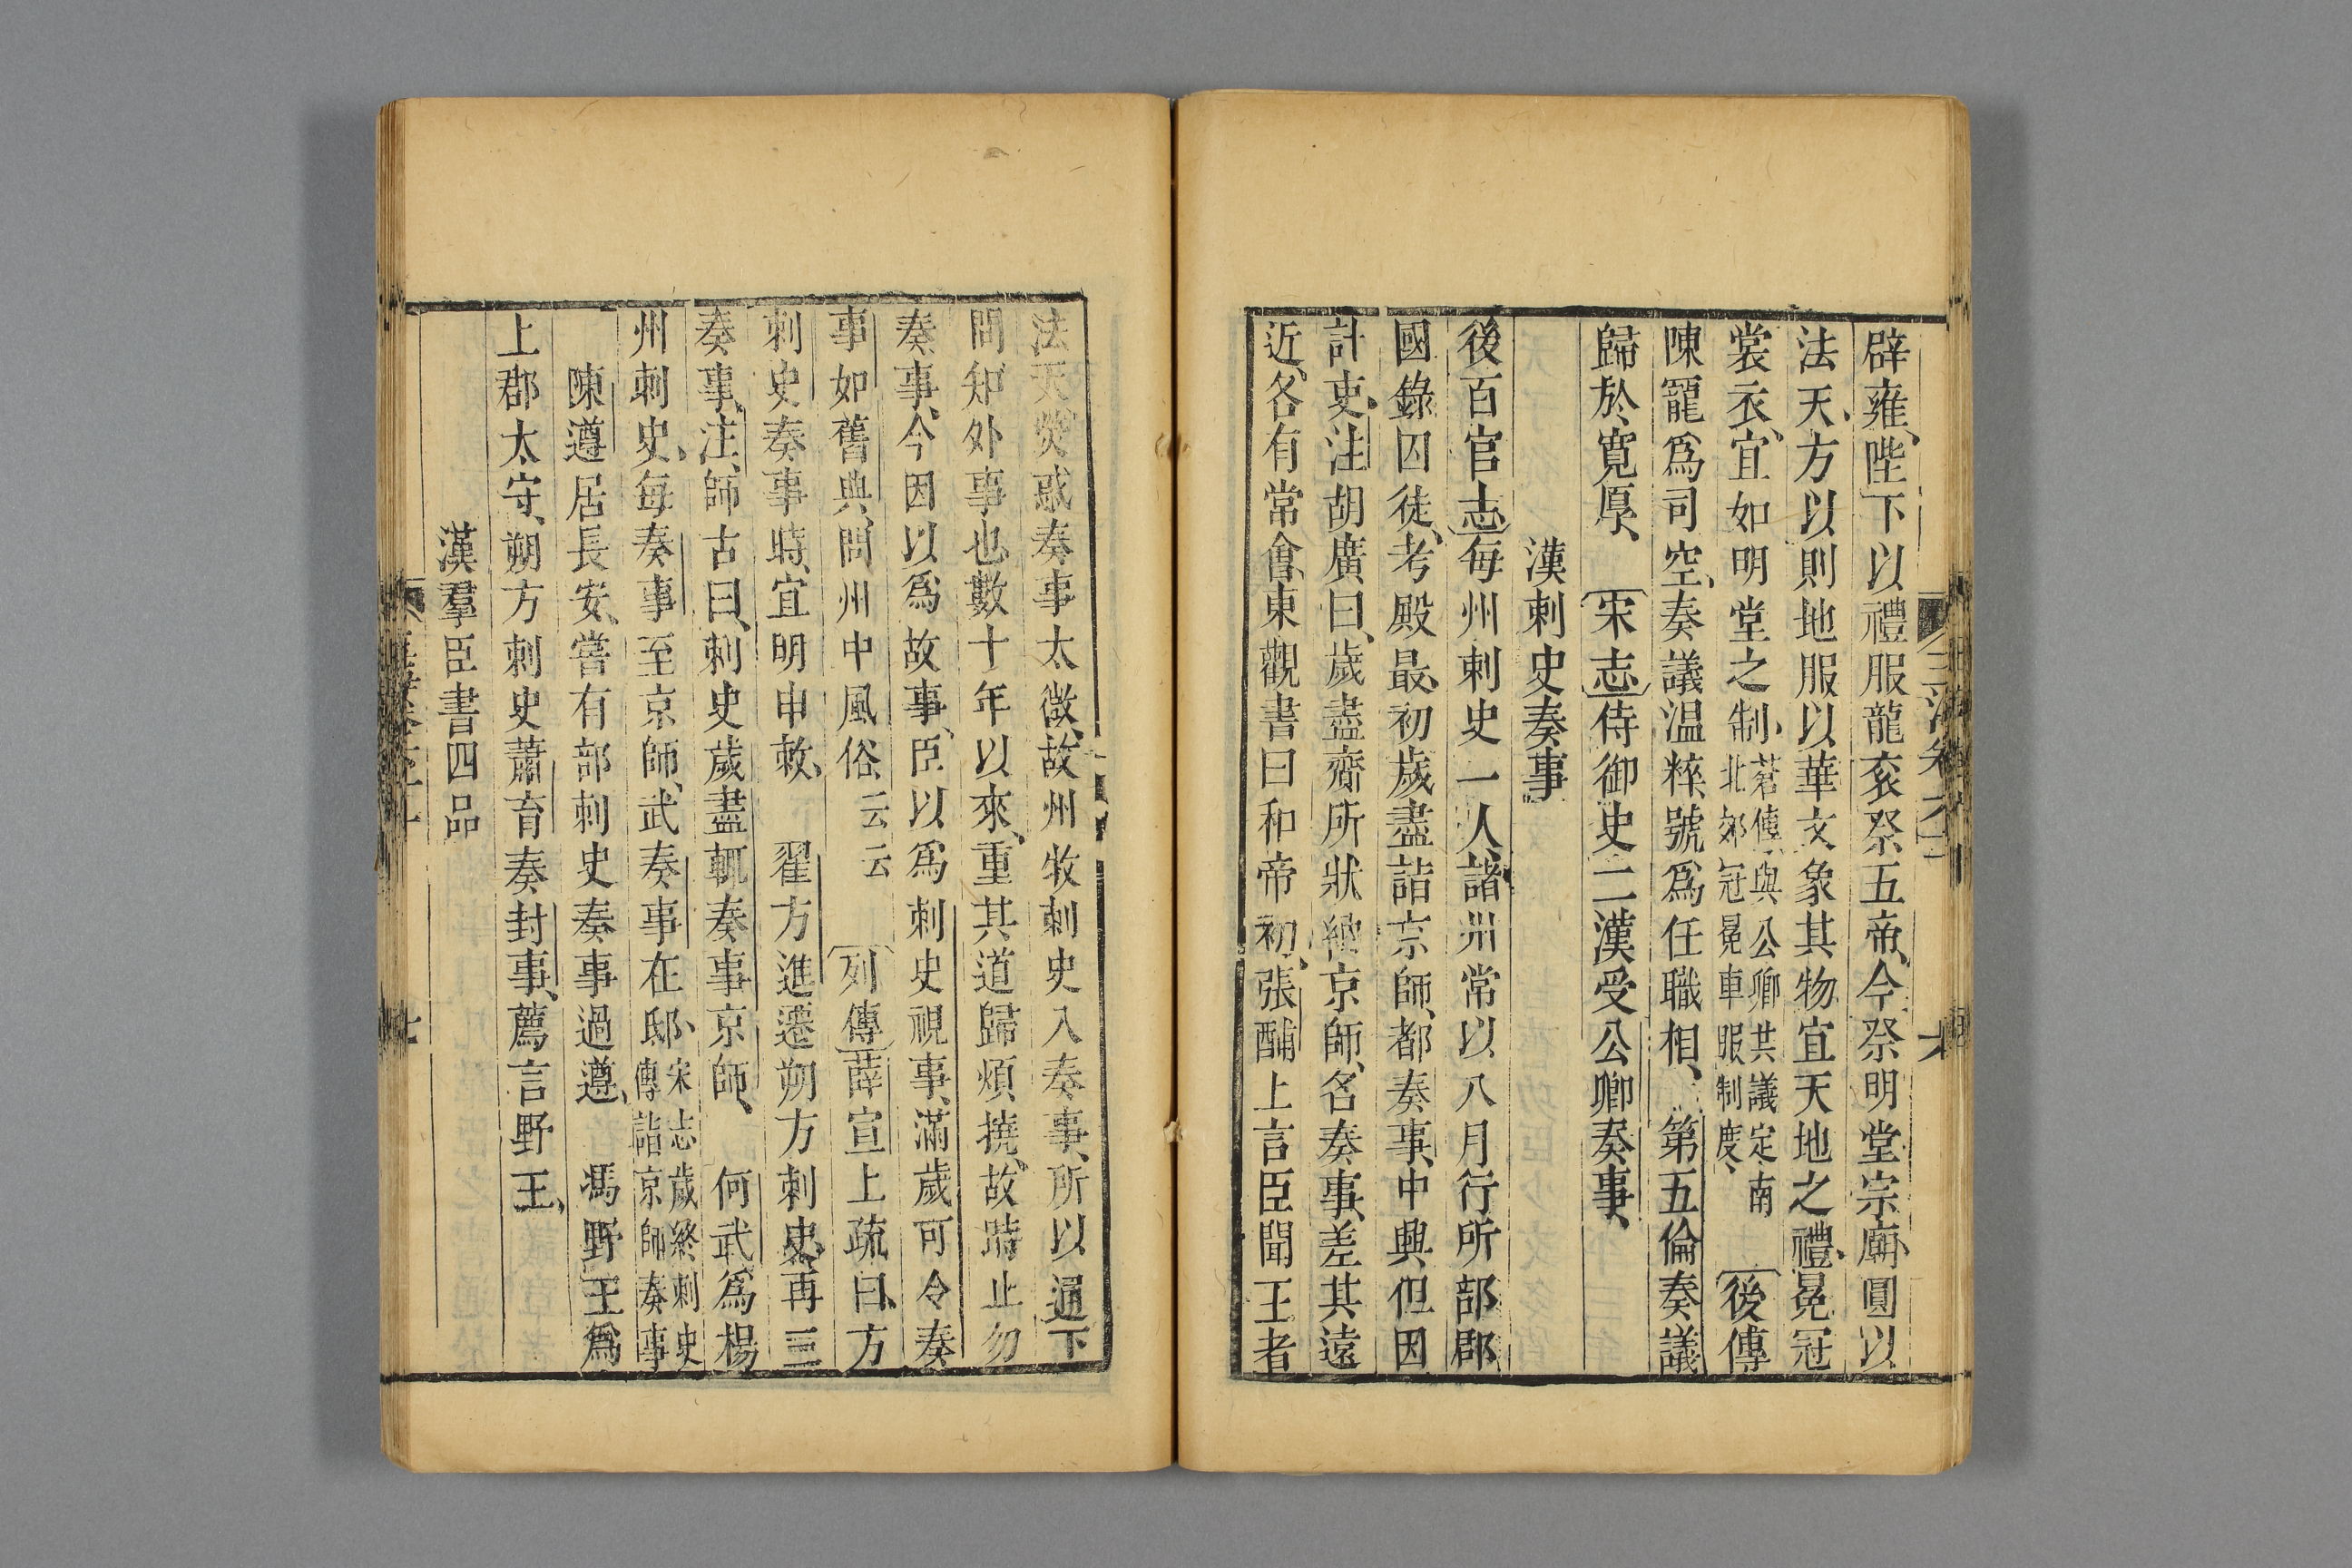 辟雍、陛下以禮服龍衮祭五帝、今祭明堂宗廟、圓以
法天、方以則地、服以華文象其物宜、天地之禮、冕冠
裳衣、宜如明堂之制、蒼傳、與公卿共議定南
北郊冠冕車服制度、後傳
陳寵爲司空、奏議温粹、號爲任職相、第五倫奏議
歸於寬厚、宋志侍御史二漢受公卿奏事、
漢刺史奏事
後百官志每州刺史一人、諸州常以八月行所部郡
國錄囚徒、考殿最、初歲盡詣京師、都奏事、中興但因
計吏、注胡廣曰、歲盡齎所狀納京師、名奏事、差其遠
近、各有常會、東觀書曰和帝初、張酺上言臣聞王者
法天、熒惑奏事太微、故州牧刺史入奏事、所以通下
問知外事也、數十年以來、重其道歸煩撓、故時止勿
奏事、今因以爲故事、臣以爲刺史視事、滿歲可令奏
事如舊典、問州中風俗、云云　列傳薛宣上疏曰、方
刺史奏事時、宜明申敕、　翟方進遷朔方刺史、再三
奏事、注、師古曰、刺史歲盡輒奏事京師、　何武爲楊
州刺史、每奏事至京師、武奏事在邸、宋志歲終刺史
傳詣京師奏事
陳遵居長安、嘗有部刺史奏事過遵、　馮野王爲
上郡太守、朔方刺史蕭育奏封事、薦言野王、
漢羣臣書四品